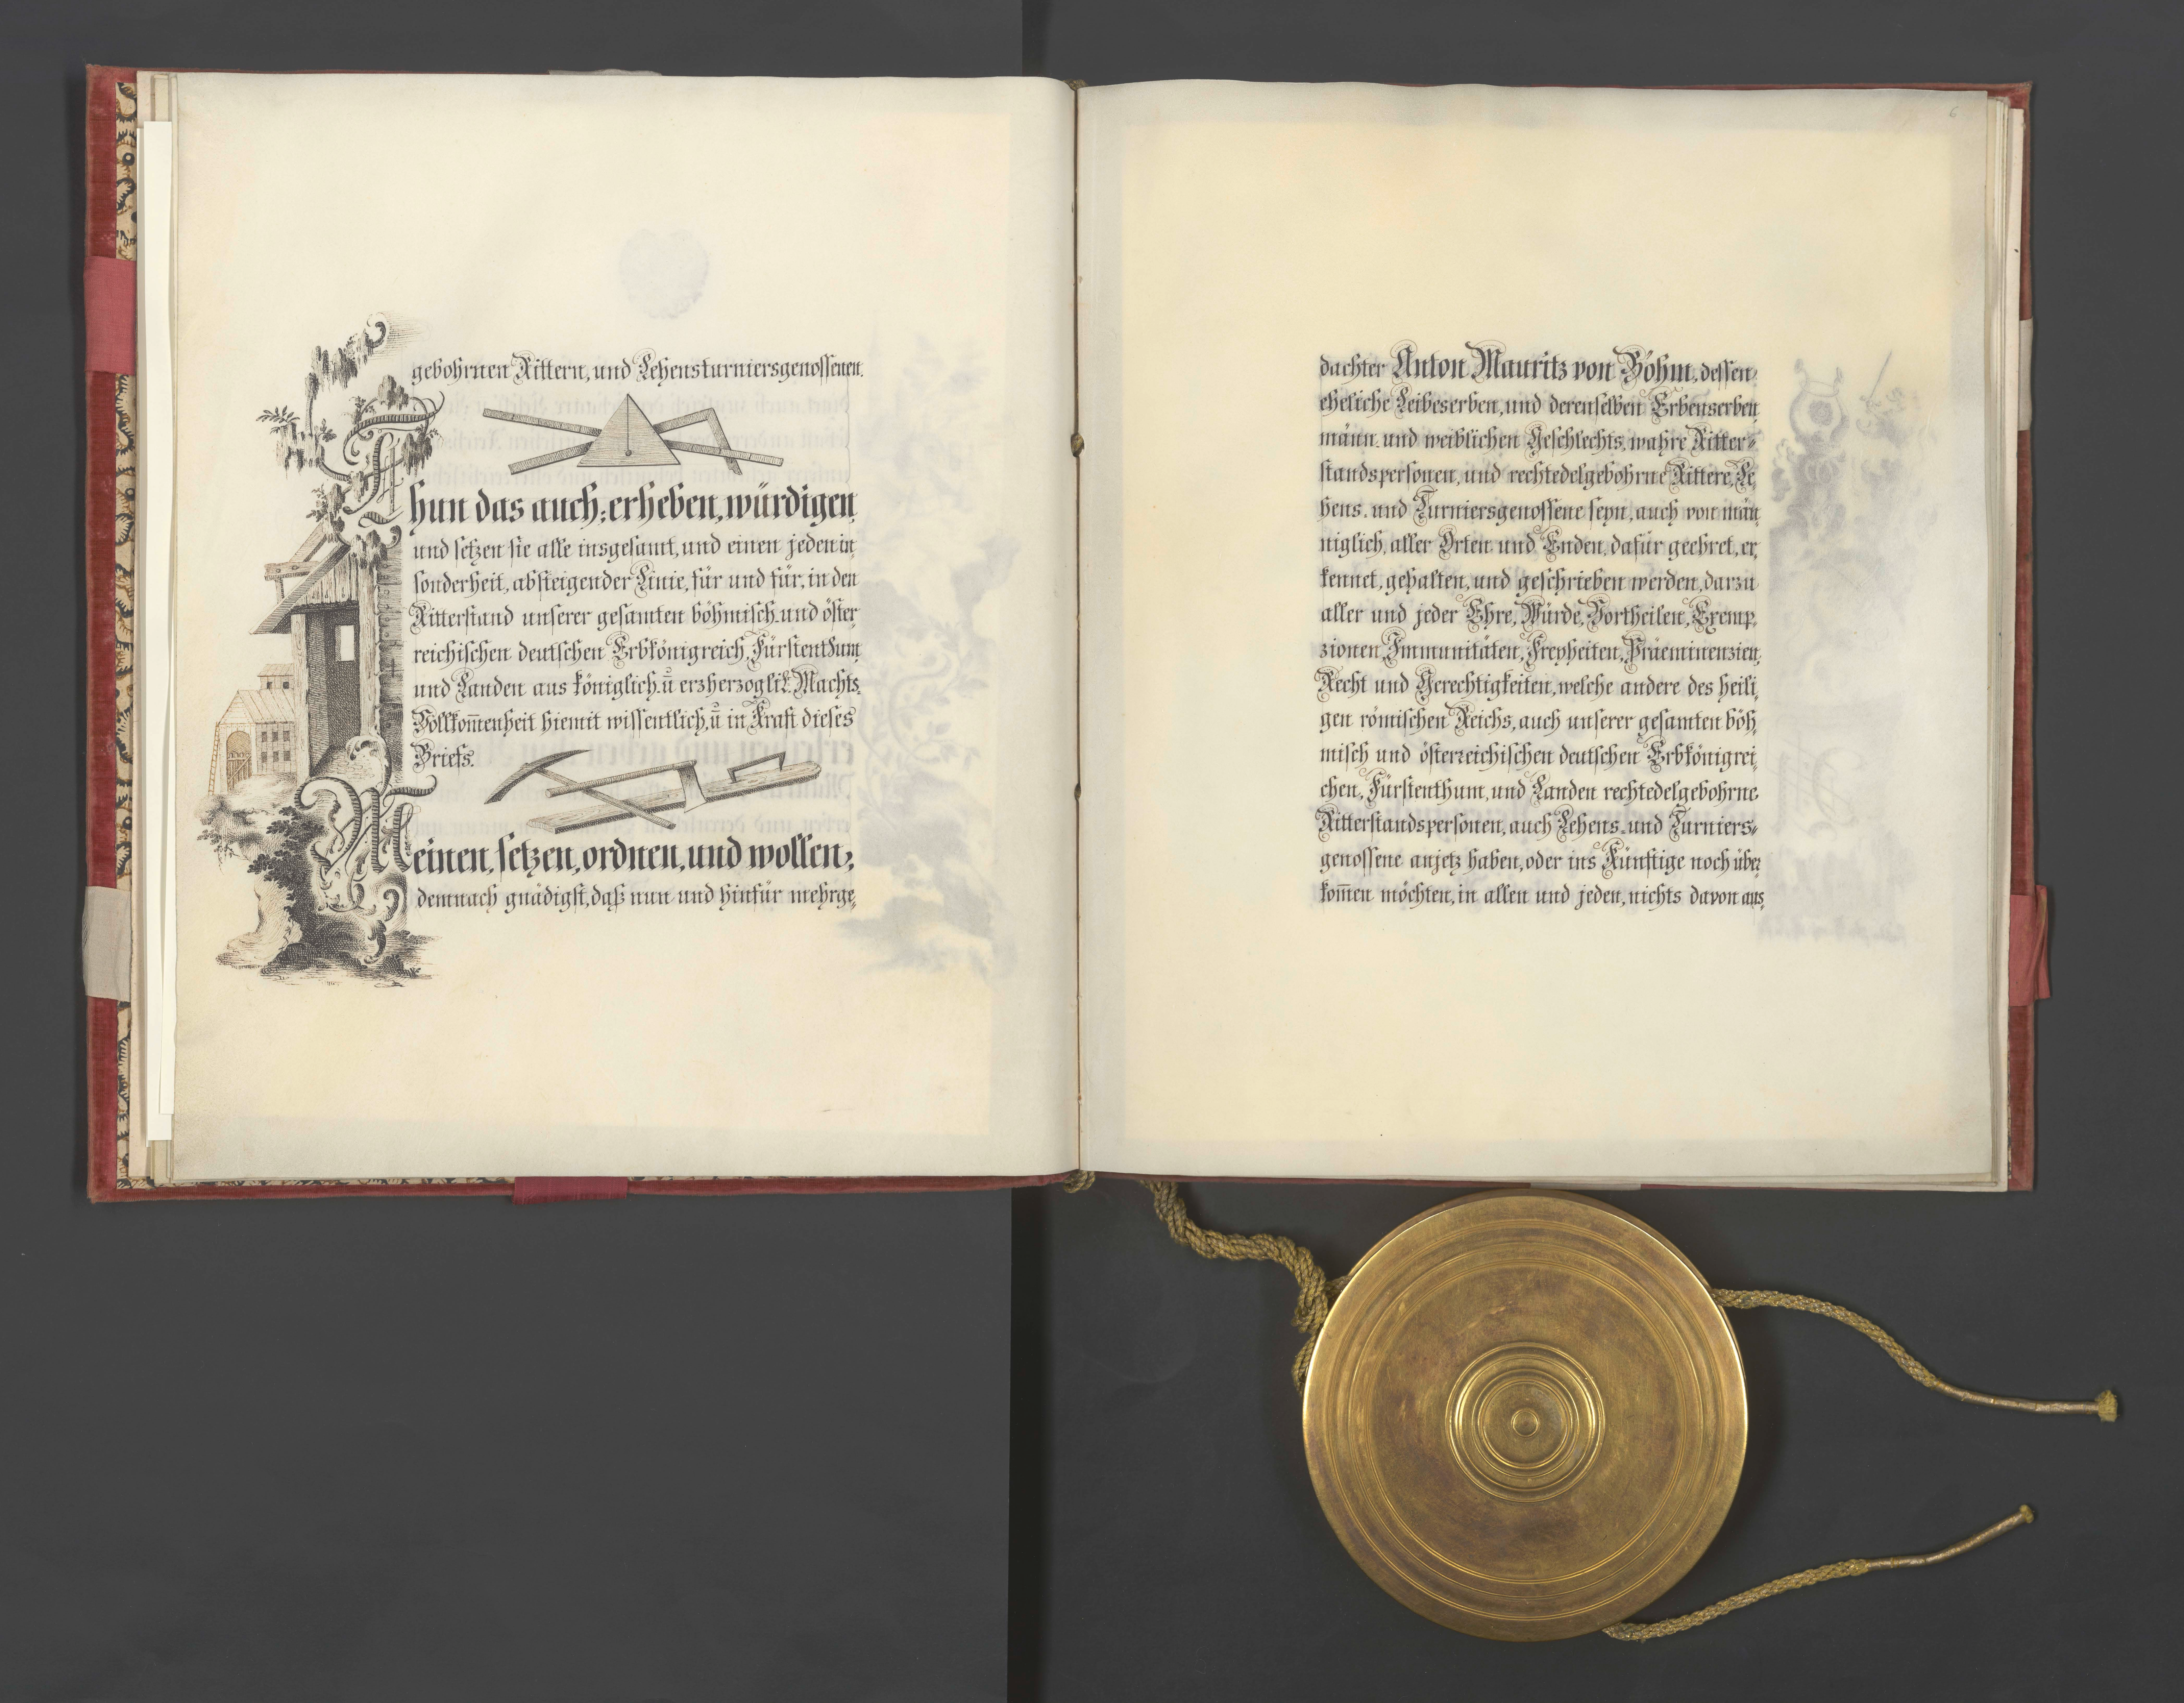 gebohrnen Rittern, und Lehensturniersgenossenen.
Thun das auch; erheben, würdigen,
und setzen sie alle insgesamt, und einen jeden in
sonderheit, absteigender Linie, für und für, in den
Ritterstand unserer gesamten böhmisch- und öster-
reichischen deutschen Erbkönigreich, Fürstenthum
und Landen aus königlich. u̅ erzherzoglic̅. Machts-
Vollkom̅enheit hiemit wissentlich, u̅ in Kraft dieses
Briefs.
Meinen, setzen, ordnen, und wollen;
demnach gnädigst, daß nun und hinfür mehrge-
6
dachter Anton Mauritz von Böhm, dessen
eheliche Leibeserben, und derenselben Erbenserben
männ- und weiblichen Geschlechts, wahre Ritter-
standspersonen, und rechtedelgebohrne Rittere, Le-
hens- und Turniersgenossene seyn, auch von män-
niglich, aller Orten und Enden, dafür geehret, er-
kennet, gehalten, und geschrieben werden, darzu
aller und jeder Ehre, Würde, Vortheilen, Exemp-
zionen, Immunitäten, Freyheiten, Präeminenzien,
Recht und Gerechtigkeiten, welche andere des heili-
gen römischen Reichs, auch unserer gesamten böh-
misch und österreichischen deutschen Erbkönigrei-
chen, Fürstenthum, und Landen rechtedelgebohrne
Ritterstandspersonen, auch Lehens- und Turniers-
genossene anjetz haben, oder ins Künftige noch über-
kom̅en möchten, in allen und jeden, nichts davon aus-